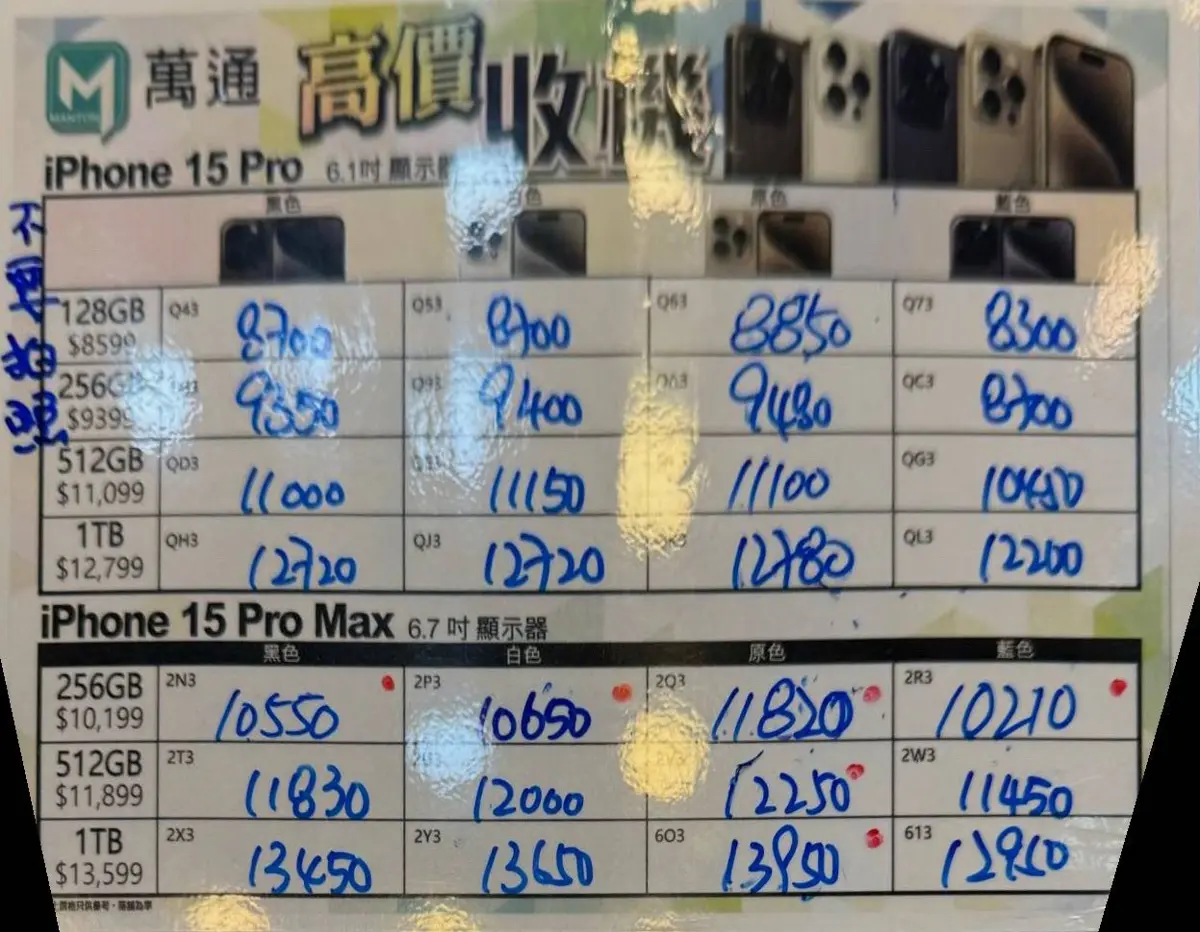 M
MANTON
萬通
高價收機
iPhone 15 Pro 6.1吋 顯示器
不要拍照
黑色 色 原色 藍色
128GB Q43 8700 Q53 8700 Q63 8850 Q73 8300
$8599
256GB 9350 Q93 9400 9480 QC3 8700
$9399
512GB QD3 11000 11150 11100 QG3 10450
$11,099
1TB QH3 12720 QJ3 12720 12780 QL3 12200
$12,799
iPhone 15 Pro Max 6.7 吋 顯示器
黑色 白色 原色 藍色
256GB 2N3 10550 2P3 10650 2Q3 11820 2R3 10210
$10,199
512GB 2T3 11830 12000 12250 2W3 11450
$11,899
1TB 2X3 13450 2Y3 13650 6O3 13950 613 12950
$13,599
價格只供參考，落舖為準